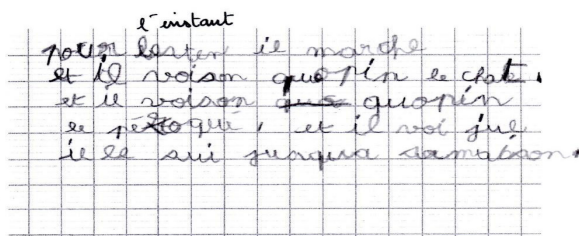 l'instant
pour lesten il marche
et il voison quopin le chat,
et il voison quopin
le péroqué, et il voi jul
il le sui jusqua samaison.